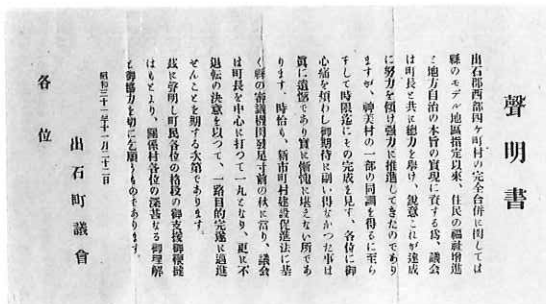 聲明書
出石郡西部四ケ町村の完全合併に関しては
縣のモデル地區指定以来、住民の福祉増進
と地方自治の本旨の實現に資する爲、議会
は町長と共に總力を擧け、鋭意これが達成
に努力を傾け強力に推進してきたのであり
ますが、神美村の一部の同調を得るに至ら
すして時限迄にその完成を見す、各位に御
心痛を煩わし御期待に副い得なかつた事は
眞に遺憾であり實に慚愧に堪えない所であ
ります、時恰も、新市町村建設促進法に基
く縣の審議機関発足寸前の秋に當り、議会
は町長を中心に打つて一丸となり、更に不
退転の決意を以つて、一路目的完遂に邁進
せんことを期する次第であります。
茲に聲明し町民各位の格段の御支援御鞭撻
はもとより、關係村各位の深甚なる御理解
と御協力を切に乞願うものであります。
昭和三十一年十一月二十二日
出石町議會
各位